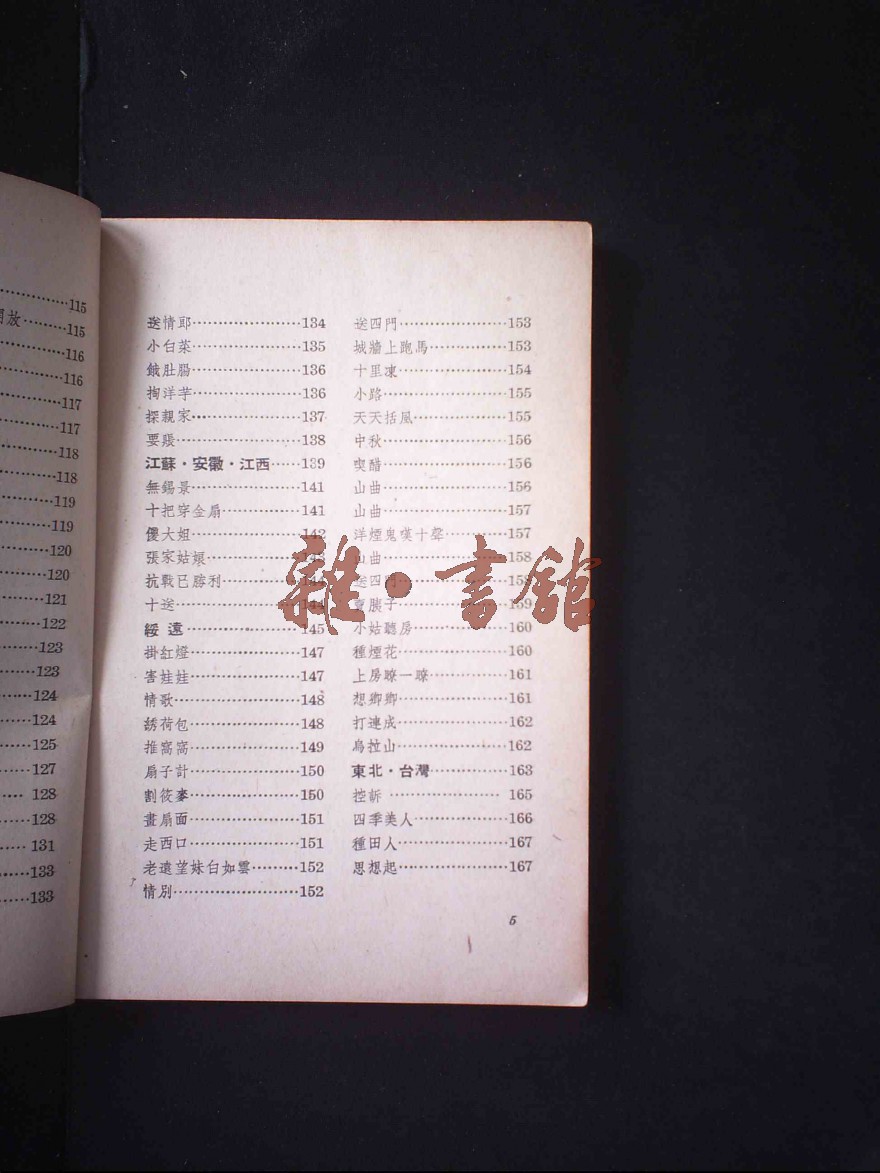 115
放………115
116
116
117
117
118
118
119
119
120
120
121
122
123
123
124
124
125
127
128
128
131
133
133
送情郎………134
小白菜………135
餓肚腸………136
掏洋芋………136
探親家………137
要賬………138
江蘇·安徽·江西………139
無錫景………141
十把穿金扇………141
傻大姐………142
張家姑娘………143
抗戰已勝利………
十送………144
綏遠………145
掛紅燈………147
害娃娃………147
情歌………148
綉荷包………148
推窩窩………149
扇子計………150
割莜麥………150
畫扇面………151
走西口………151
老遠望妹白如雲………152
情別………152
送四門………153
城牆上跑馬………153
十里凍………154
小路………155
天天括風………155
中秋………156
喫醋………156
山曲………156
山曲………157
洋煙鬼嘆十聲………157
山曲………158
送四門………158
賣胰子………159
小姑聽房………160
種煙花………160
上房瞭一瞭………161
想鄉鄉………161
打連成………162
烏拉山………162
東北·台灣………163
控訴………165
四季美人………166
種田人………167
思想起………167
5
雜·書館